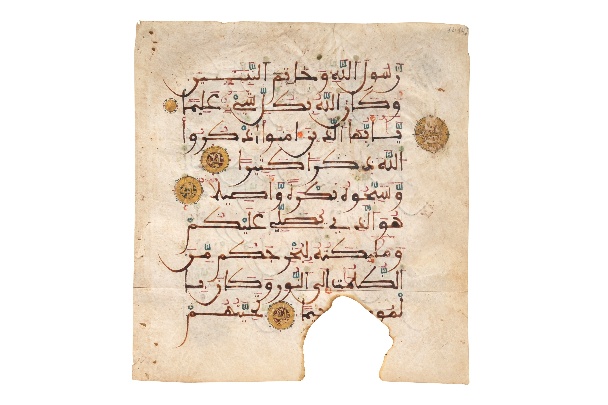 رسول الله وخاتم النبيين
وكان الله بكل شيء عليما
يأيها الذين امنوا اذكروا
الله ذكرا كثيرا
وسبحوه بكرة واصيلا
هو الذي يصلي عليكم
ومليكته ليخرجكم من
الظلمت الى النور وكان با
تحيتهم